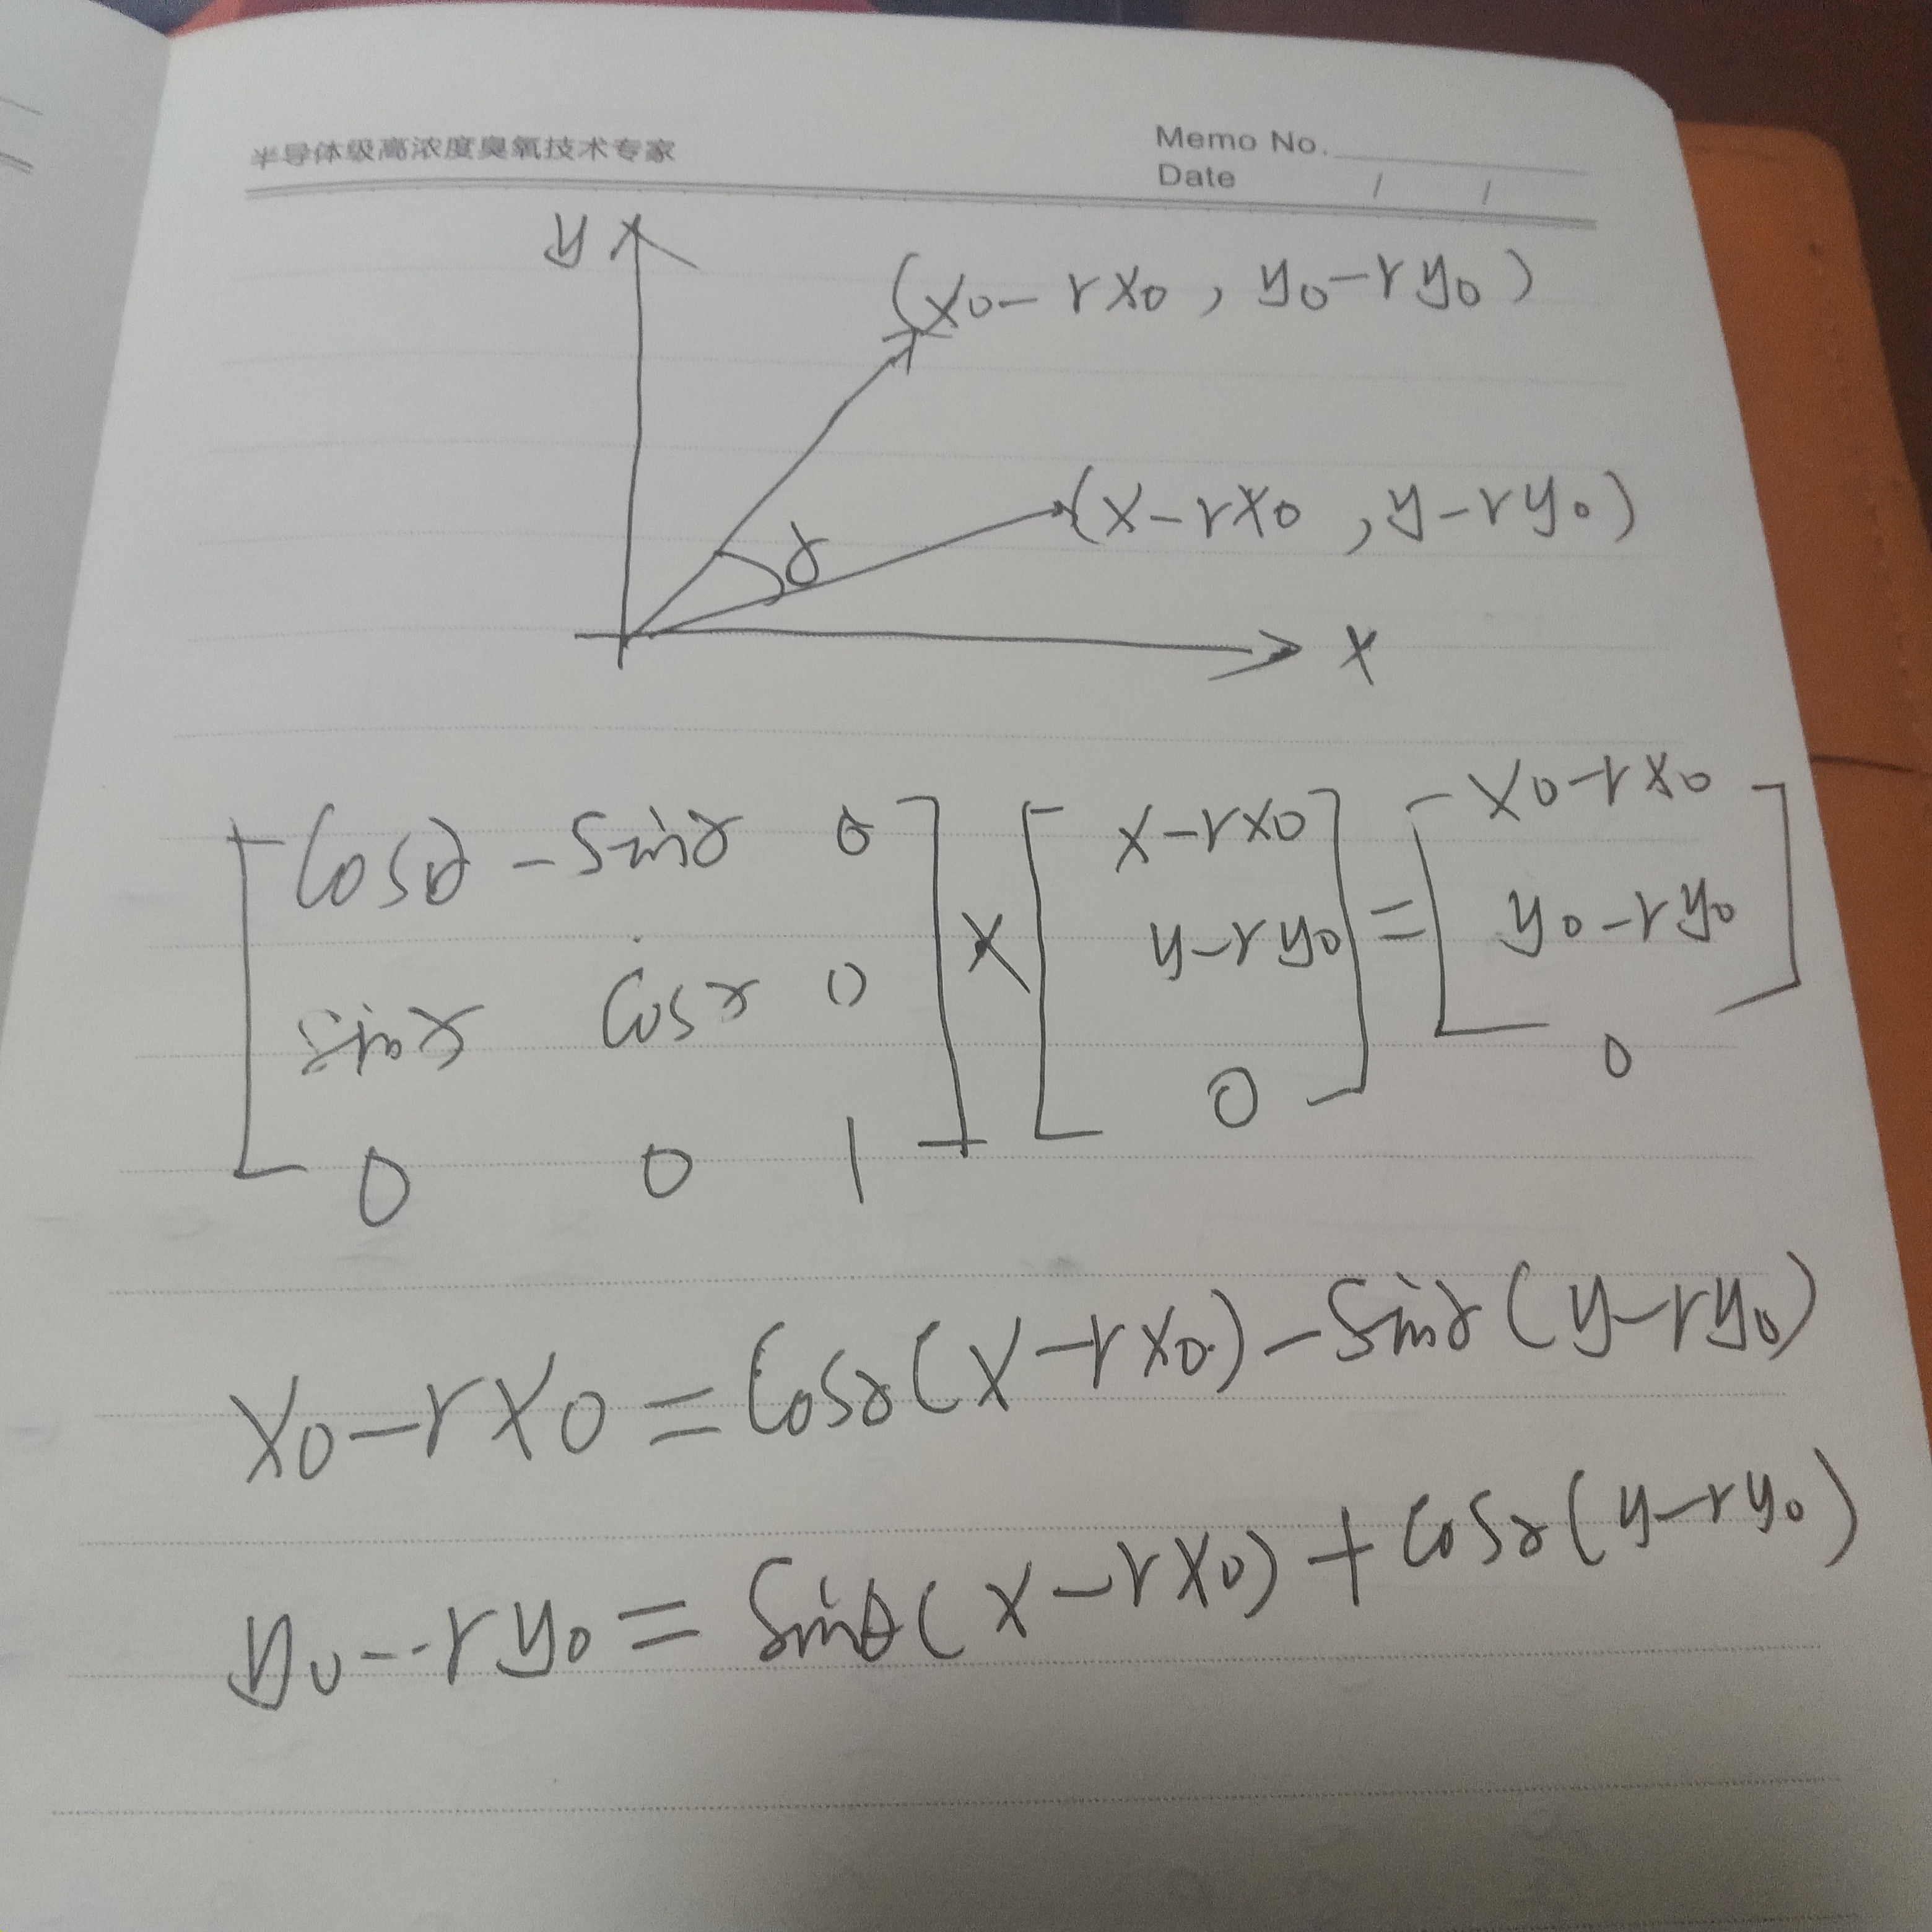 半导体级高浓度臭氧技术专家
Memo No.
Date / /
y
(x0-rx0, y0-ry0)
(x-rx0, y-ry0)
γ
x
[cosγ -sinγ 0] × [x-rx0] = [x0-rx0]
[sinγ cosγ 0] [y-ry0] [y0-ry0]
[0 0 1] [0] [0]
x0-rx0=cosγ(x-rx0)-sinγ(y-ry0)
y0-ry0=sinθ(x-rx0)+cosγ(y-ry0)